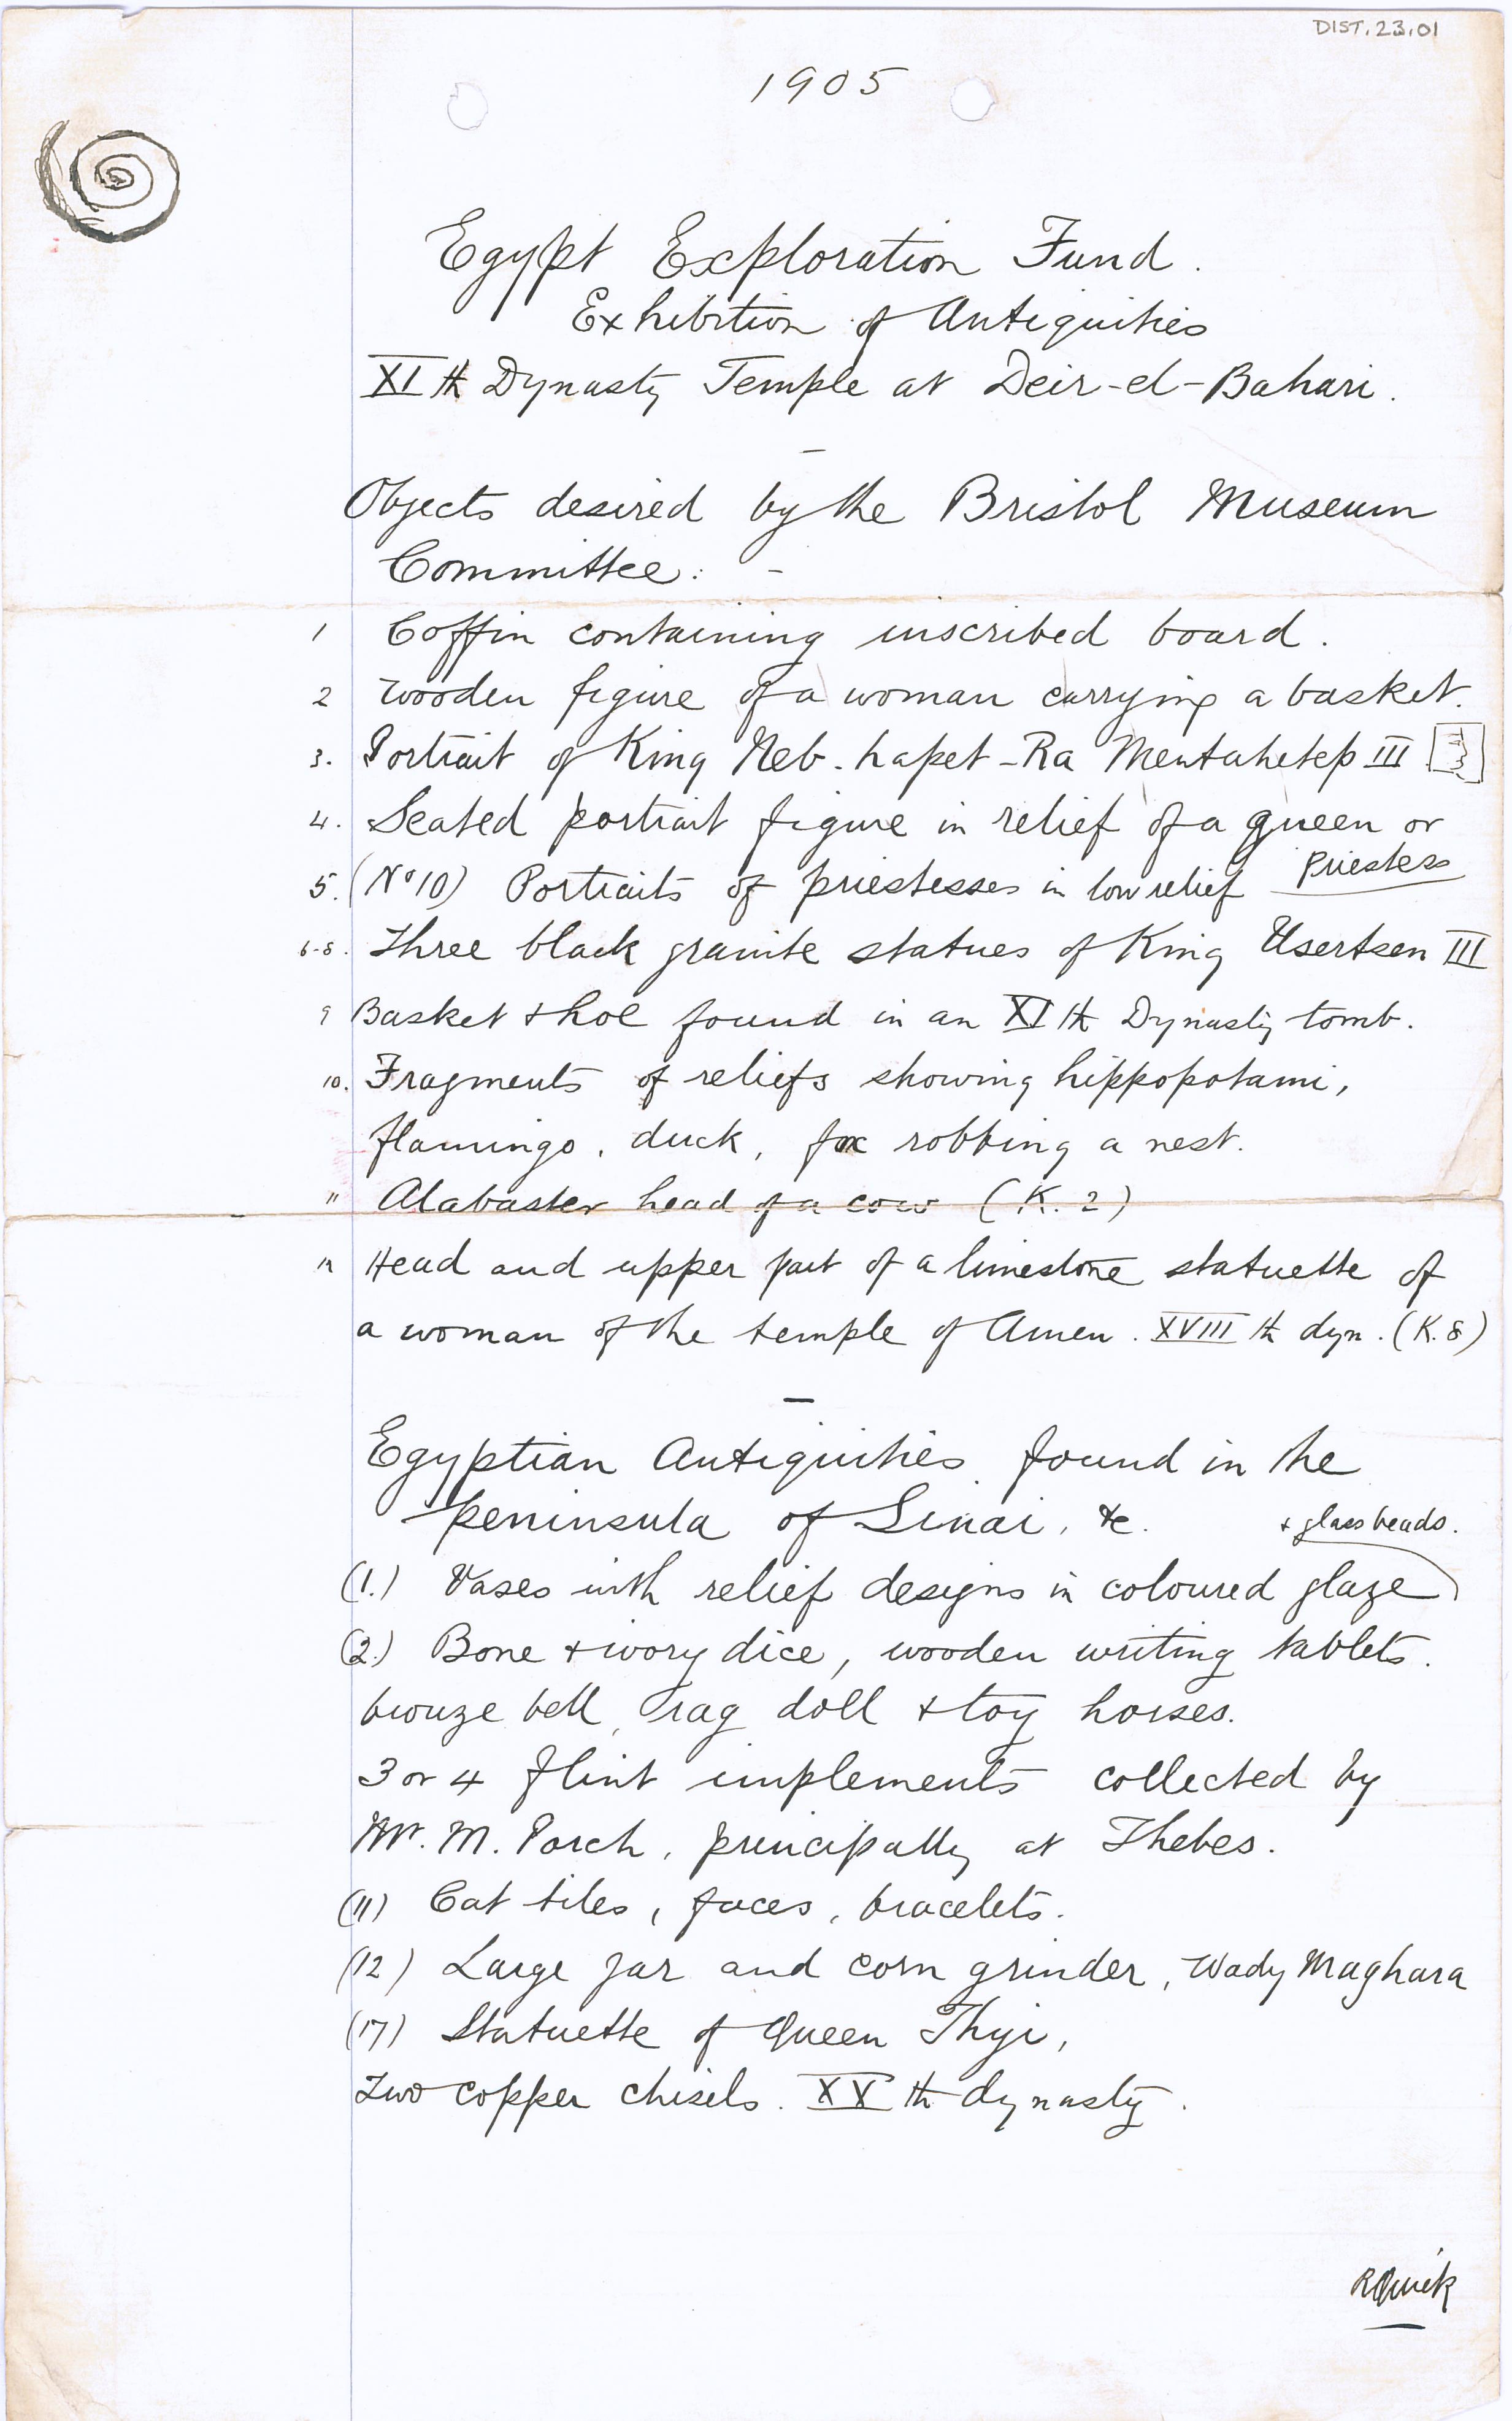 DIST.23.01
1905
Egypt Exploration Fund.
Exhibition of Antiquities
XIth Dynasty Temple at Deir-el-Bahari.
Objects desired by the Bristol Museum
Committee: -
1 Coffin containing inscribed board.
2 Wooden figure of a woman carrying a basket.
3. Portrait of King Neb-hapet-Ra Mentuhetep III
4. Seated portrait figure in relief of a queen or
Priestess
5. (No 10) Portraits of priestesses in low relief
6-8. Three black granite statues of King Usertsen III
9 Basket & hoe found in an XIth Dynasty tomb.
10. Fragments of reliefs showing hippopotami,
flamingo, duck, fox robbing a nest.
11 Alabaster head of a cow (K.2)
12 Head and upper part of a limestone statuette of
a woman of the temple of Amen. XVIIIth dyn. (K.8)
Egyptian Antiquities found in the
peninsula of Sinai, &c.
& glass beads.
(1.) Vases with relief designs in coloured glaze
(2.) Bone & ivory dice, wooden writing tablets.
bronze bell, rag doll & toy horses.
3 or 4 flint implements collected by
Mr. M. Porch, principally at Thebes.
(11) Cat tiles, faces, bracelets.
(12) Large jar and corn grinder, Wady Maghara
(17) Statuette of Queen Thyi,
Two copper chisels. XXth dynasty.
RQuick